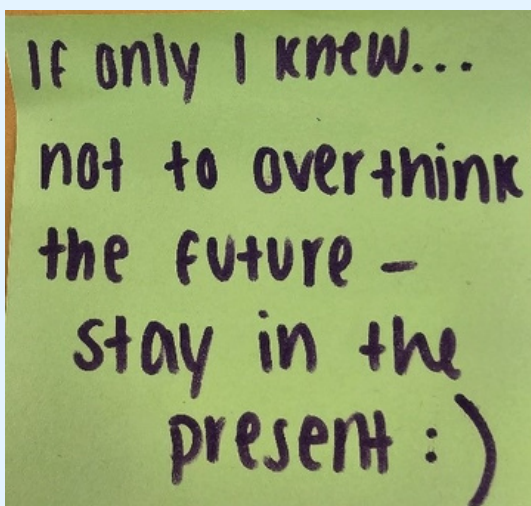 If only I knew...
not to overthink
the future -
stay in the
present :)